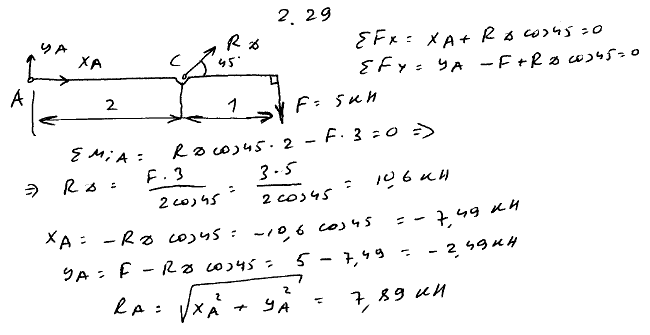 2.29
yA xA C RB 45° ΣFx = xA + RB cos45 = 0
ΣFy = yA - F + RB cos45 = 0
A 2 1 F = 5 кН
ΣMiA = RB cos45 · 2 - F · 3 = 0 ⇒
⇒ RB = F · 3 / 2 cos45 = 3 · 5 / 2 cos45 = 10,6 кН
xA = - RB cos45 = -10,6 cos45 = - 7,49 кН
yA = F - RB cos45 = 5 - 7,49 = - 2,49 кН
RA = √(xA² + yA²) = 7,89 кН